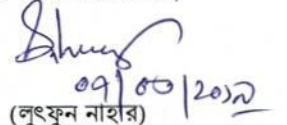 ০৭/০৩/২০১৯
(লুৎফুন নাহার)